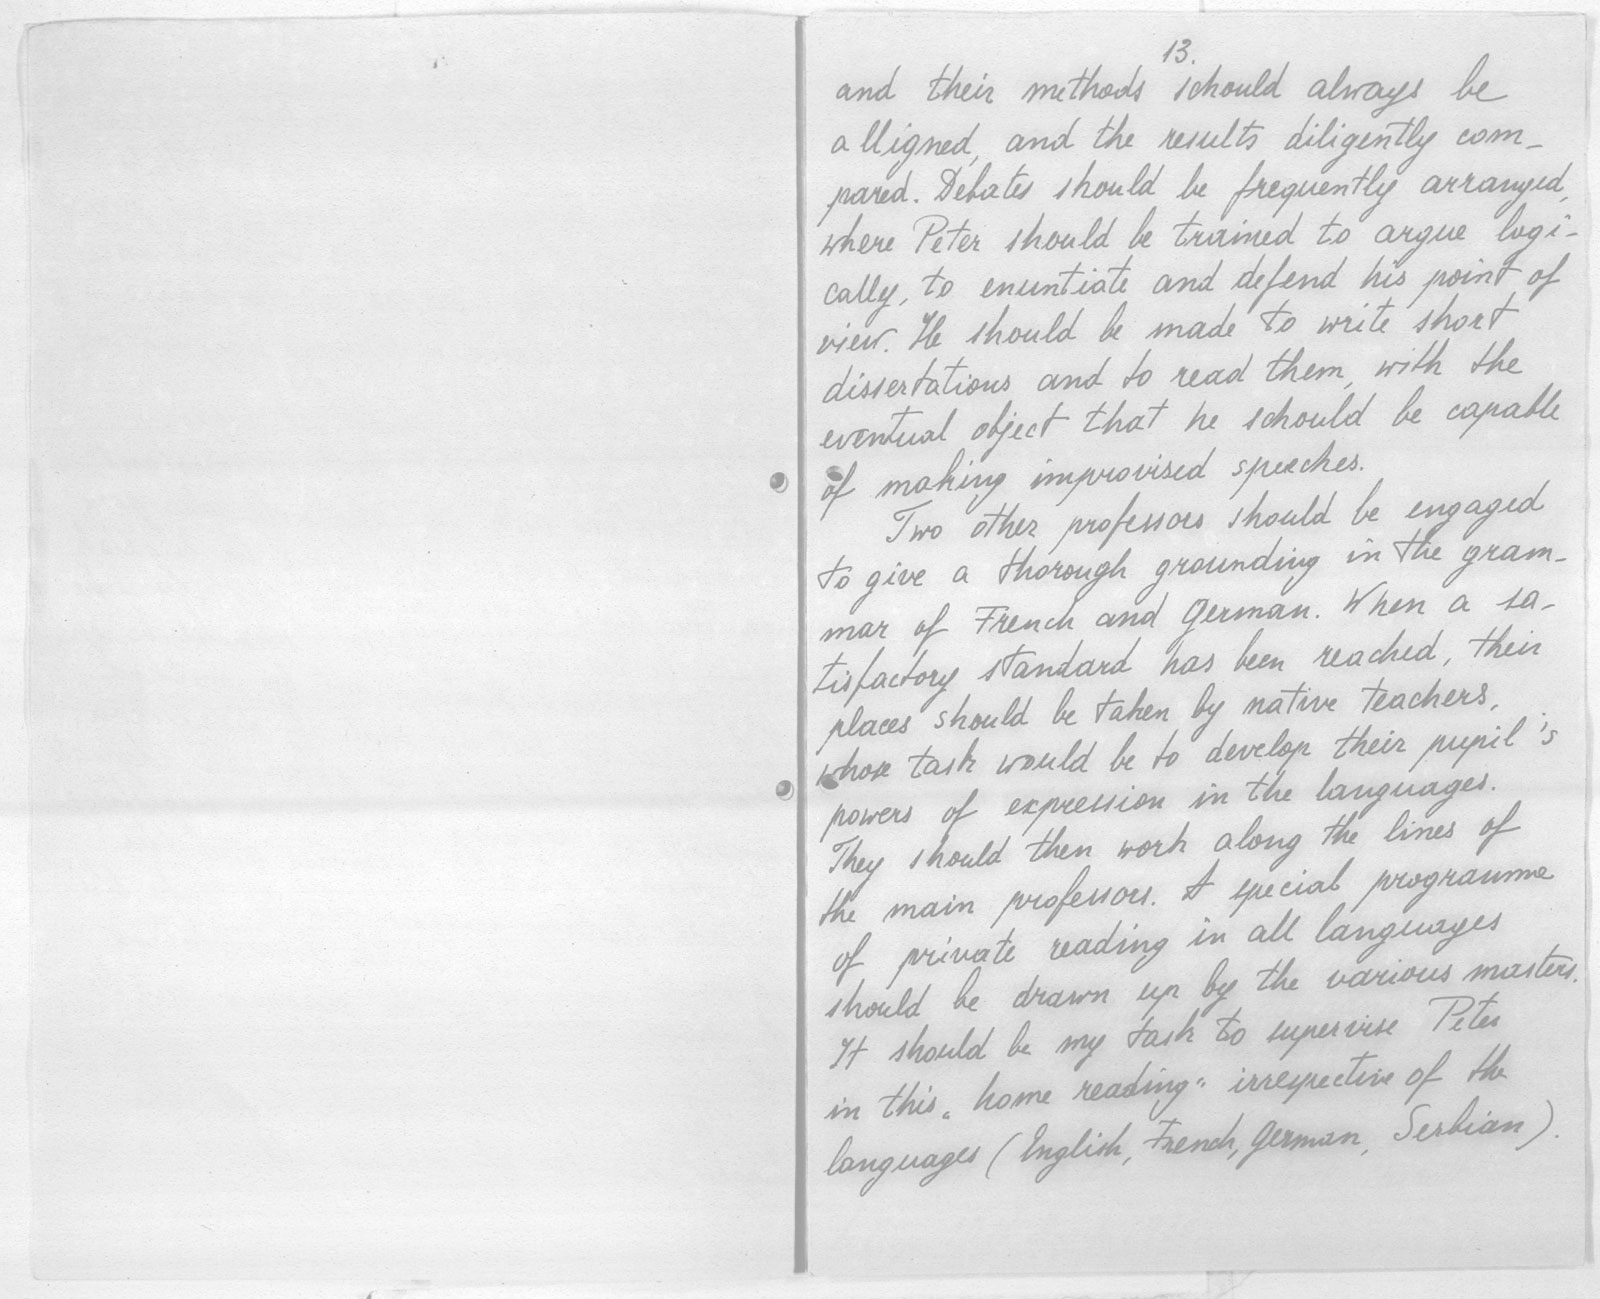 13.
and their methods schould always be
alligned, and the results diligently com-
pared. Debates should be frequently arranged,
where Peter should be trained to argue logi-
cally, to enuntiate and defend his point of
view. He should be made to write short
dissertations and to read them, with the
eventual object that he schould be capable
of making improvised speeches.
Two other professors should be engaged
to give a thorough grounding in the gram-
mar of French and German. When a sa-
tisfactory standard has been reached, their
places should be taken by native teachers,
whose task would be to develop their pupil's
powers of expression in the languages.
They should then work along the lines of
the main professors. A special programme
of private reading in all languages
should be drawn up by the various masters.
It should be my task to supervise Peter
in this „home reading“ irrespective of the
languages (English, French, German, Serbian).